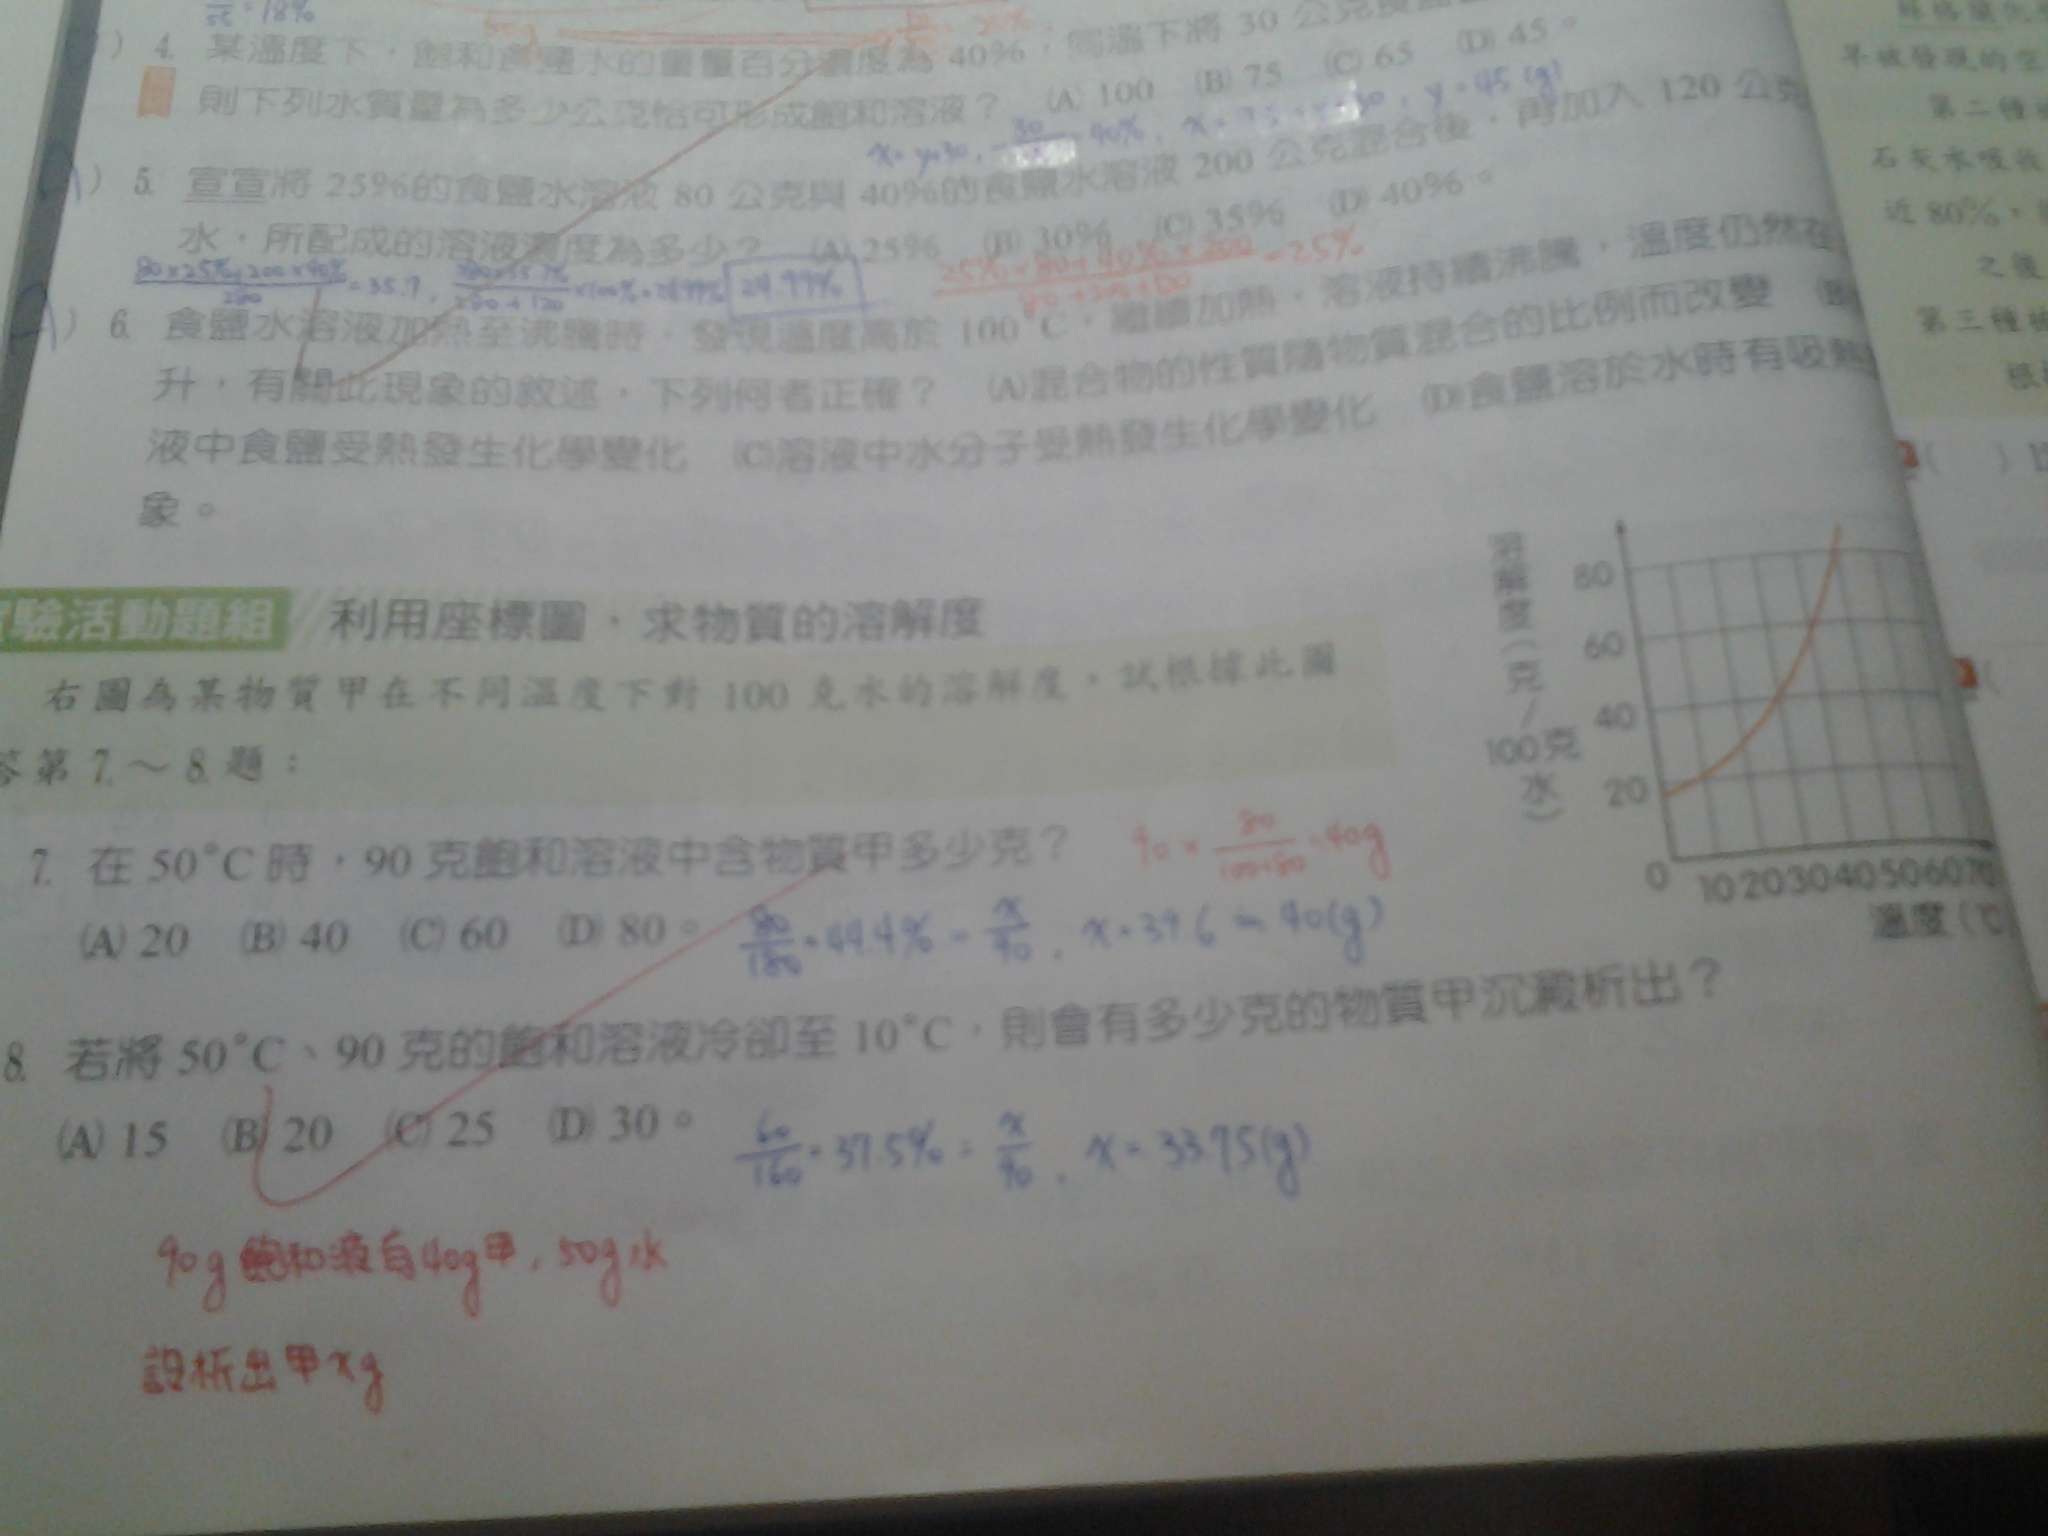 = 18%
50g
4. 某溫度下，飽和食鹽水的重量百分濃度為 40%；同溫下將 30 公克食鹽
則下列水質量為多少公克恰可形成飽和溶液？ (A) 100 (B) 75 (C) 65 (D) 45。
40%, y = 45 (g)
(A) 5. 宣宣將 25%的食鹽水溶液 80 公克與 40%的食鹽水溶液 200 公克混合後，再加入 120 公克
水，所配成的溶液濃度為多少？ (A) 25% (B) 30% (C) 35% (D) 40%。
80×25%+200×40%/280 = 35.7, ×100% = 24.99% 24.99%
25%×80+40%×200/80+200+120 = 25%
(A) 6. 食鹽水溶液加熱至沸騰時，發現溫度高於 100°C，繼續加熱，溶液持續沸騰，溫度仍然在
升，有關此現象的敘述，下列何者正確？ (A)混合物的性質隨物質混合的比例而改變 (B)
液中食鹽受熱發生化學變化 (C)溶液中水分子受熱發生化學變化 (D)食鹽溶於水時有吸熱
象。
驗活動題組 利用座標圖，求物質的溶解度
右圖為某物質甲在不同溫度下對 100 克水的溶解度，試根據此圖
答第 7.～8.題：
溶解度（克/100克水）
80
60
40
20
0 10 20 30 40 50 60 70
溫度（℃
7. 在 50°C 時，90 克飽和溶液中含物質甲多少克？ 90 × 80/100+80 = 40g
(A) 20 (B) 40 (C) 60 (D) 80。 80/180 = 44.4% = x/90, x = 39.6 ≒ 40(g)
8. 若將 50°C、90 克的飽和溶液冷卻至 10°C，則會有多少克的物質甲沉澱析出？
(A) 15 (B) 20 (C) 25 (D) 30。 60/160 = 37.5% = x/90, x = 33.75(g)
90g 飽和液有40g甲，50g水
設析出甲xg
早被發現的空
第二種
石灰水吸收
近 80%，
之後
第三種
根
( ) 15
(